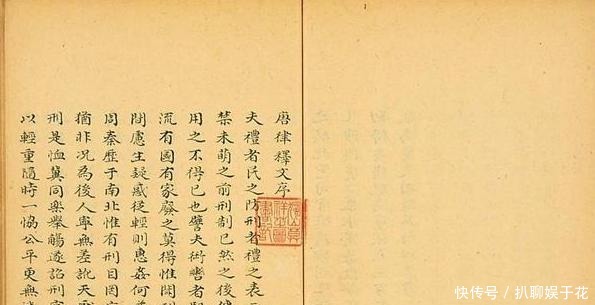 唐律釋文序
夫禮者民之防刑者禮之表
禁未萌之前刑制已然之後
用之不得已也譬夫術嗜者
流有國有家廢之莫得惟閑
閑慮生疑惑從輕則惠姦何
周秦歷于南北惟有刑目罔
猶非况為後人寧無差訛天
刑是恤冀同樂舉觸遂詒刑
以輕重隨時一協公平更無
快传号 / 扒聊娱于花